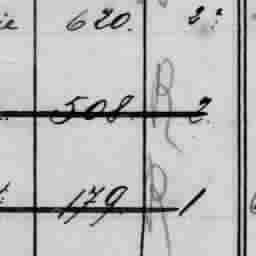 ie 620. 2.
508 2.
179. 1